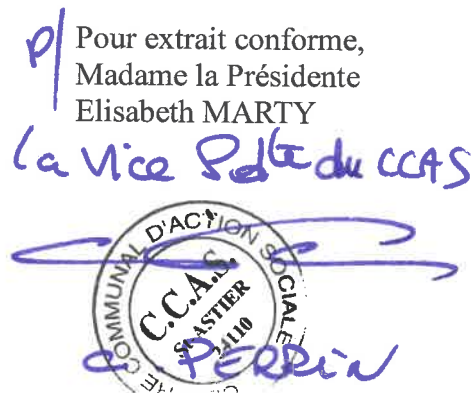 P/ Pour extrait conforme,
Madame la Présidente
Elisabeth MARTY
la Vice Pdte du CCAS
COMMUNAL D'ACTION SOCIALE
C.C.A.S.
St ASTIER
24110
C. PERRIN